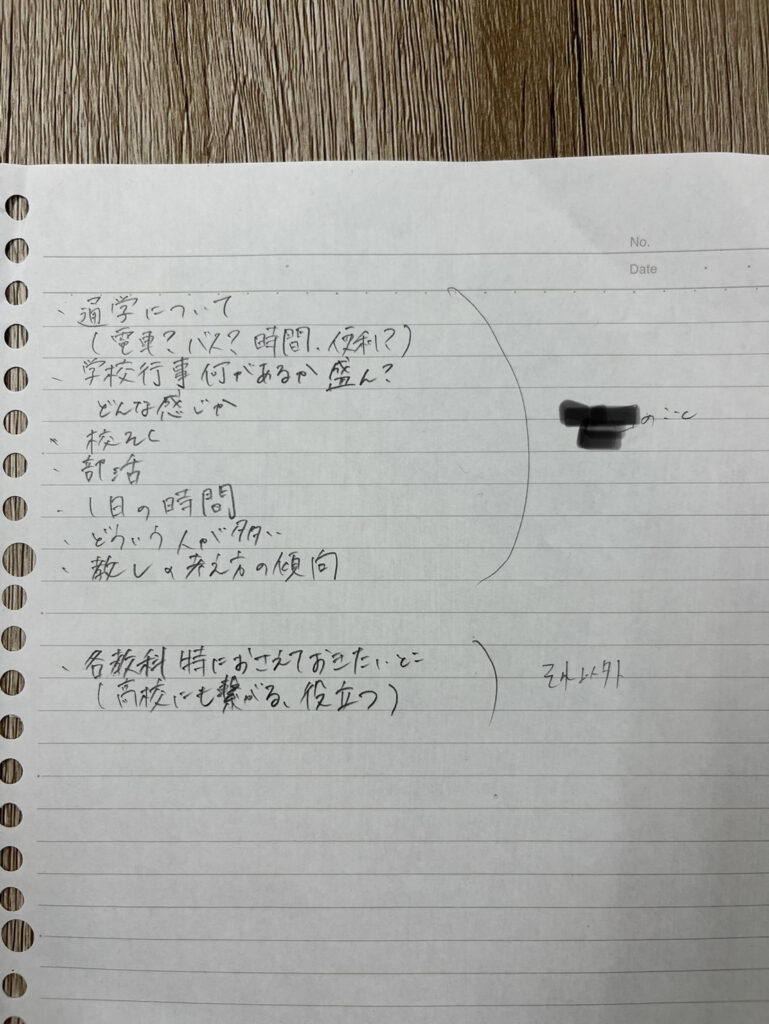 No.
Date
・通学について
(電車? バス? 時間、便利?)
・学校行事 何があるか 盛ん?
どんな感じか
・校そく
・部活
・1日の時間
・どういう人が多い
・教しの考え方の傾向
のこと
・各教科 特におさえておきたいとこ
(高校にも繋がる、役立つ)
それ以外